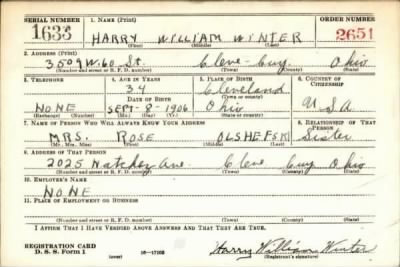 SERIAL NUMBER 1. NAME (Print) ORDER NUMBER
1633 HARRY WILLIAM WINTER 2651
(First) (Middle) (Last)
2. ADDRESS (Print)
3509 W. 60 St. Cleve - Cuy. Ohio
(Number and street or R. F. D. number) (Town) (County) (State)
3. TELEPHONE 4. AGE IN YEARS 5. PLACE OF BIRTH 6. COUNTRY OF CITIZENSHIP
34 Cleveland
DATE OF BIRTH (Town or county)
NONE SEPT- 8- 1906 Ohio U.S.A
(Exchange) (Number) (Mo.) (Day) (Yr.) (State or country)
7. NAME OF PERSON WHO WILL ALWAYS KNOW YOUR ADDRESS 8. RELATIONSHIP OF THAT PERSON
MRS. ROSE OLSHEFSKI Sister
(Mr., Mrs., Miss) (First) (Middle) (Last)
9. ADDRESS OF THAT PERSON
2025 Natchez Ave. Cleve Cuy Ohio
(Number and street or R. F. D. number) (Town) (County) (State)
10. EMPLOYER'S NAME
NONE
11. PLACE OF EMPLOYMENT OR BUSINESS
(Number and street or R. F. D. number) (Town) (County) (State)
I AFFIRM THAT I HAVE VERIFIED ABOVE ANSWERS AND THAT THEY ARE TRUE.
REGISTRATION CARD
D. S. S. Form 1 (over) Harry William Winter
(Registrant's signature)